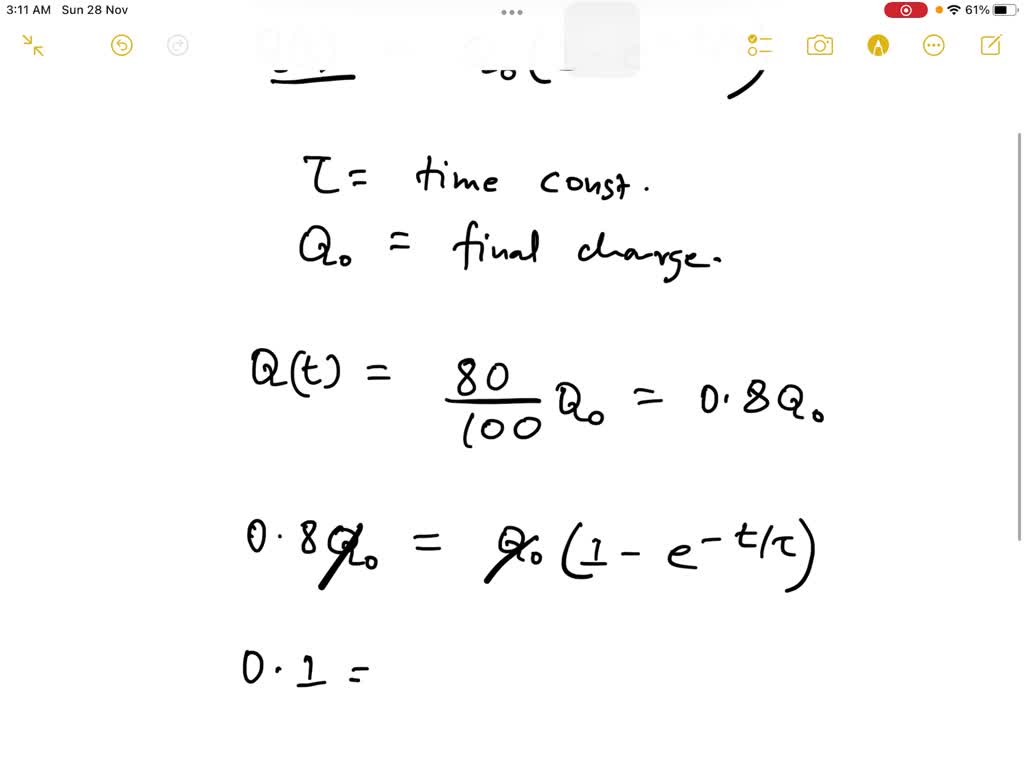 3:11 AM Sun 28 Nov 61%
τ = time const.
Q₀ = final charge.
Q(t) = 80/100 Q₀ = 0.8Q₀
0.8Q₀ = Q₀ (1 - e^-t/τ)
0.1 =